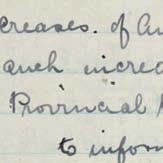 creases. of
such increa
Provincial
to infor